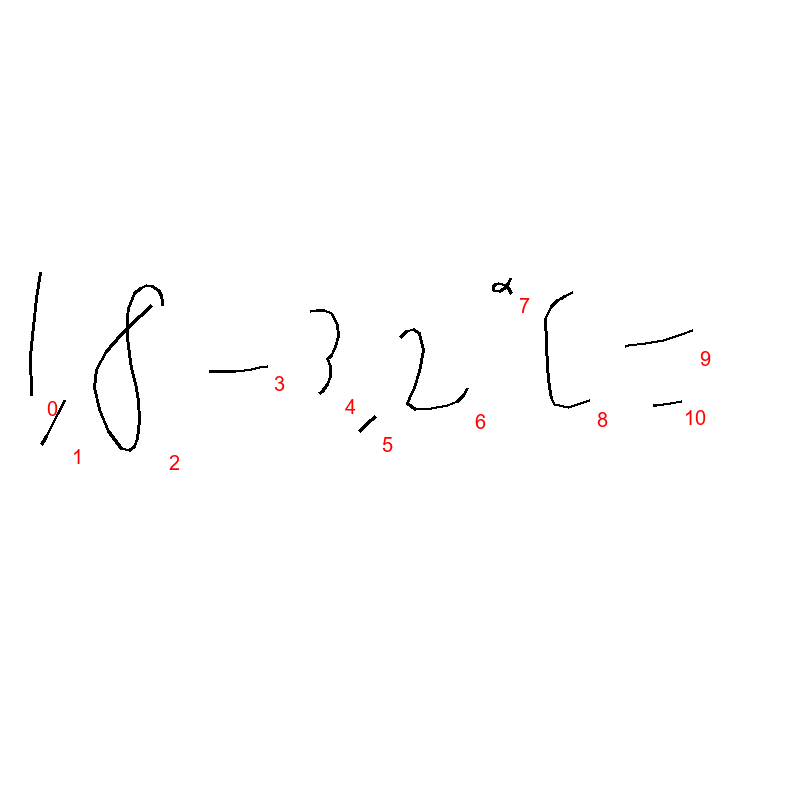 1,8-3,2°C=
0 1 2 3 4 5 6 7 8 9 10